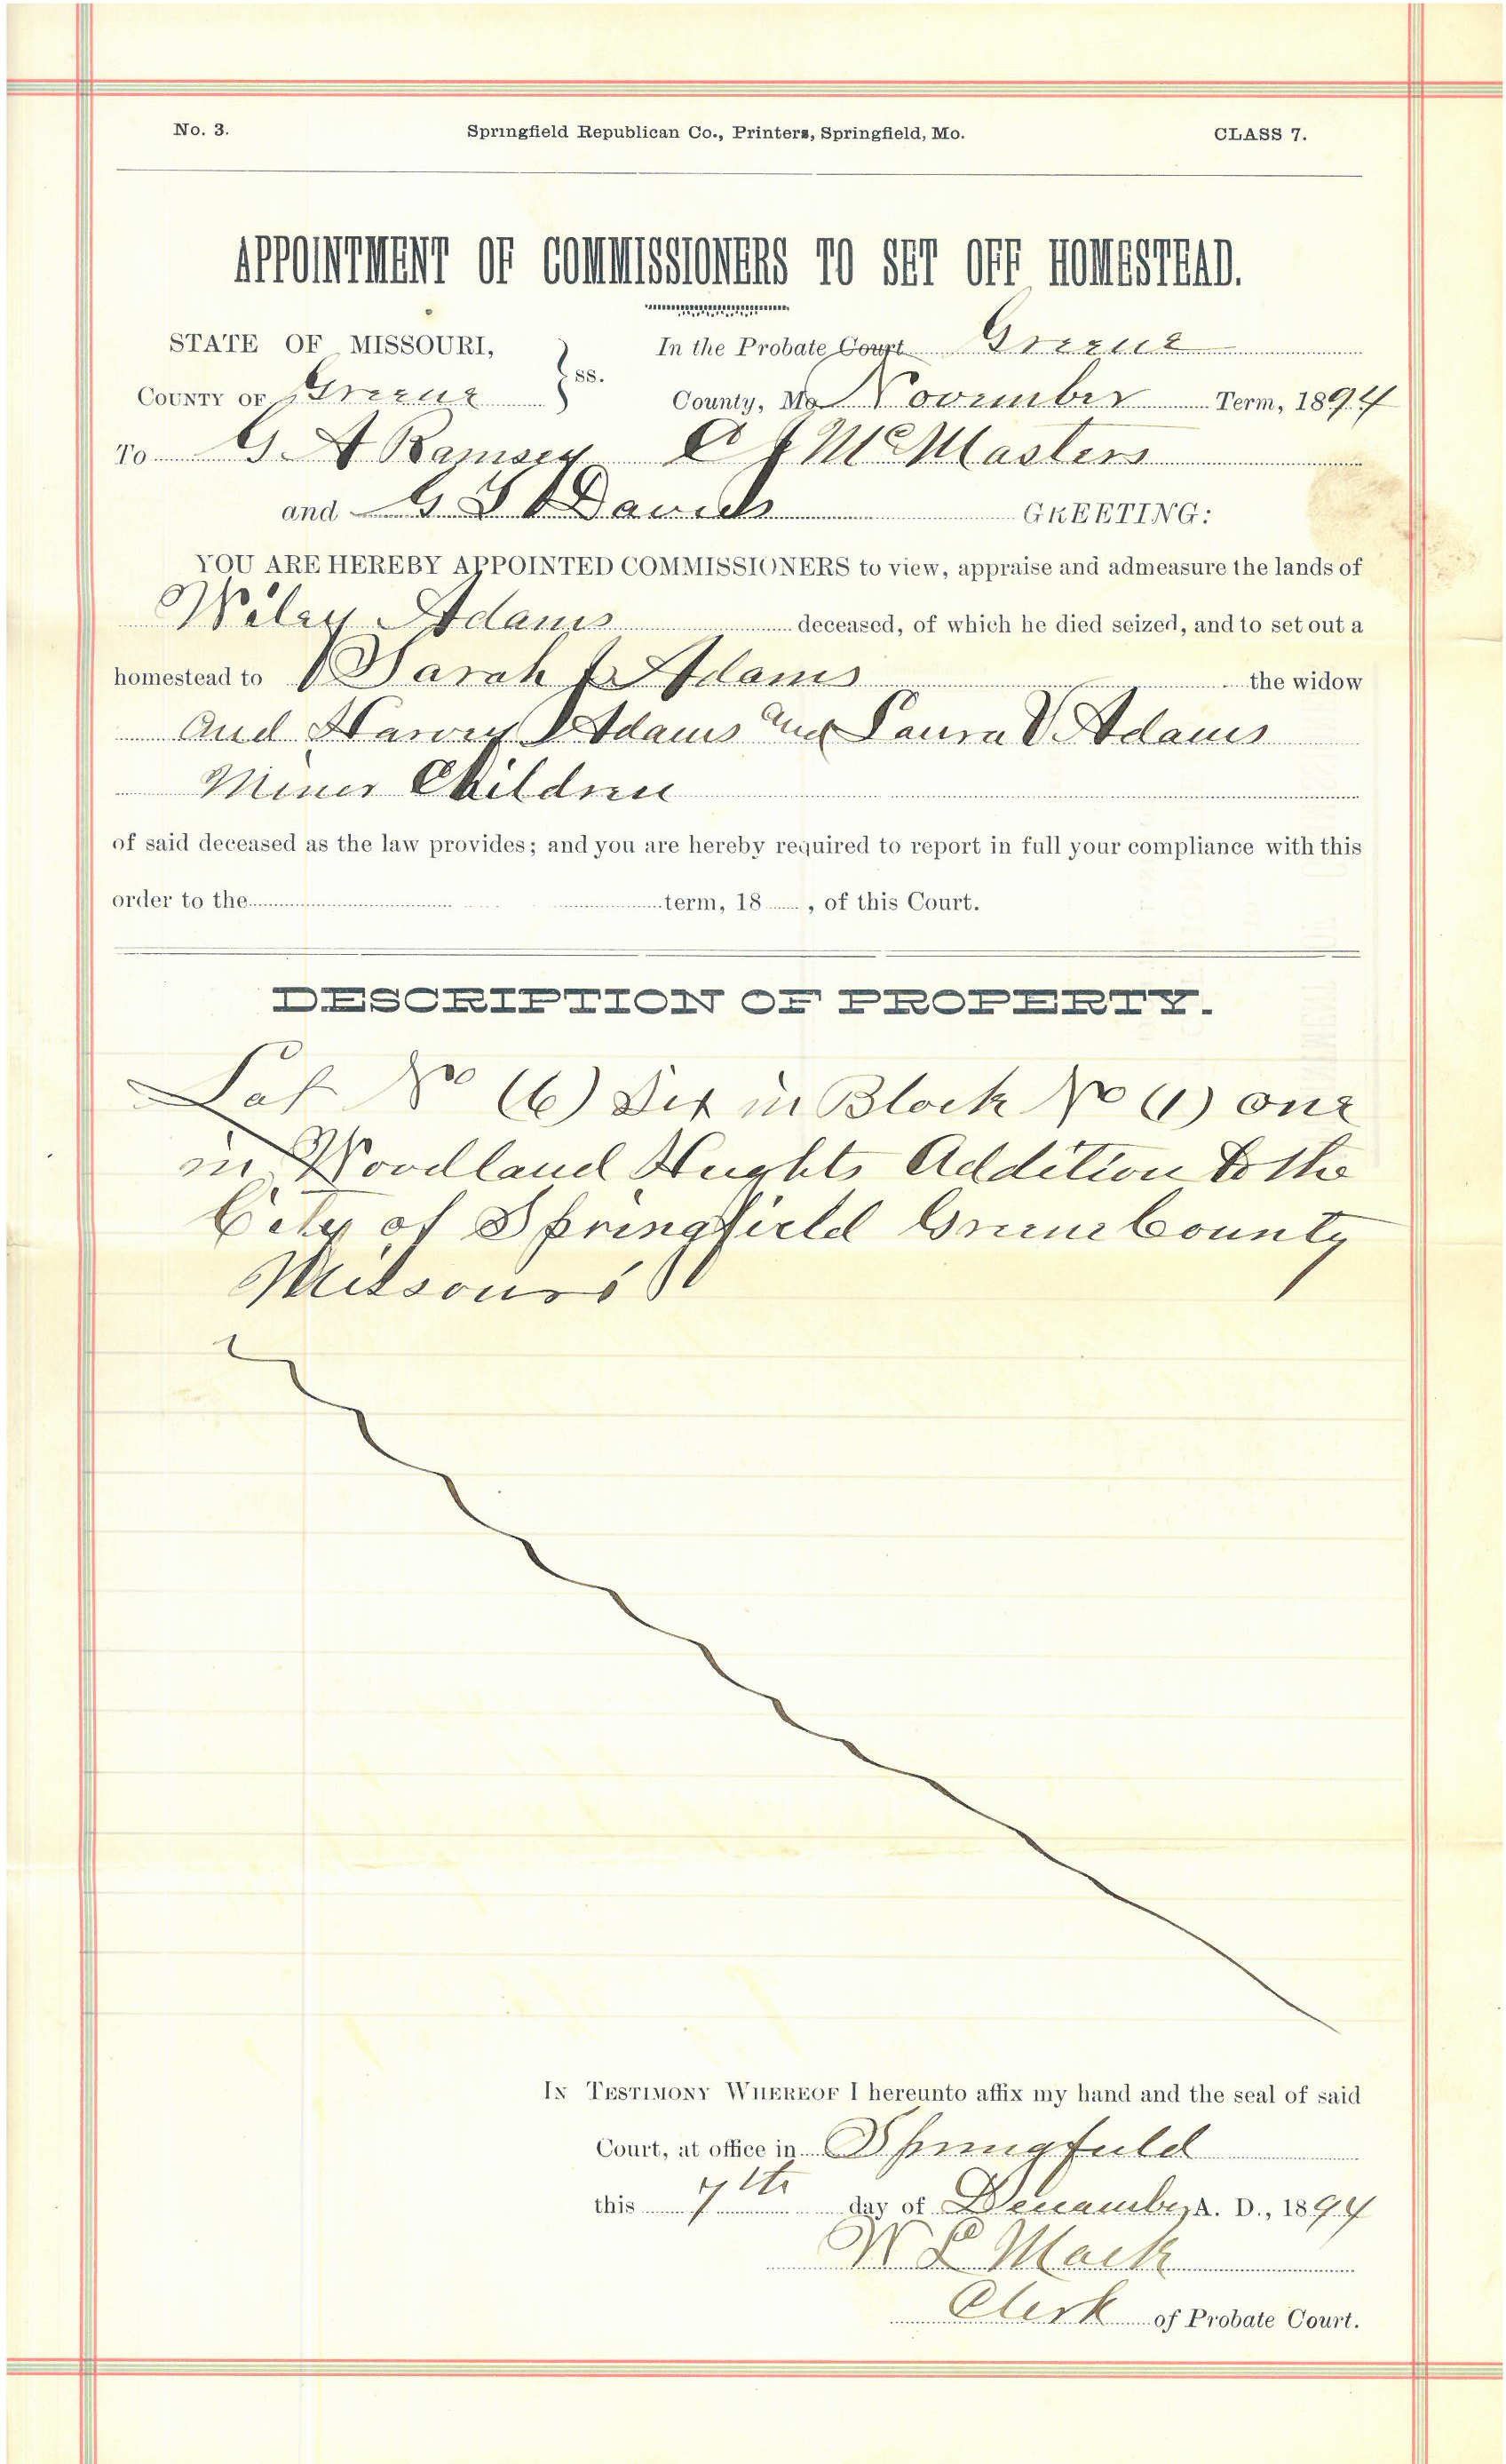 No. 3. Springfield Republican Co., Printers, Springfield, Mo. CLASS 7.
APPOINTMENT OF COMMISSIONERS TO SET OFF HOMESTEAD.
STATE OF MISSOURI, In the Probate Court Greene
COUNTY OF Greene ss. County, Mo November Term, 1894
To G A Ramsey A J McMasters
and G S Davis GREETING:
YOU ARE HEREBY APPOINTED COMMISSIONERS to view, appraise and admeasure the lands of
Wiley Adams deceased, of which he died seized, and to set out a
homestead to Sarah J Adams the widow
and Harvey Adams and Laura V Adams
Minor Children
of said deceased as the law provides; and you are hereby required to report in full your compliance with this
order to the term, 18 , of this Court.
DESCRIPTION OF PROPERTY.
Lot No (6) Six in Block No (1) one
in Woodland Heights Addition to the
City of Springfield Greene County
Missouri
IN TESTIMONY WHEREOF I hereunto affix my hand and the seal of said
Court, at office in Springfield
this 7th day of December A. D., 1894
W L Mack
Clerk of Probate Court.